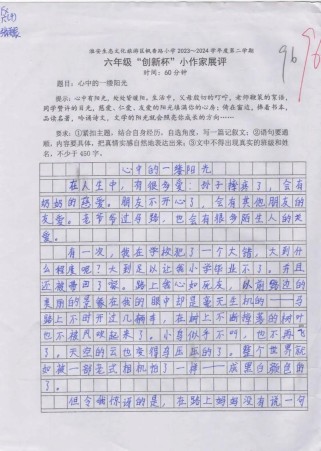 淮安生态文化旅游区枫香路小学2023~2024学年度第二学期
六年级“创新杯”小作家展评
时间：60分钟
96
题目：心中的一缕阳光
提示：心中有阳光，处处皆暖阳。生活中，父母殷切的叮咛，老师鞭策的寄语，
同学赞许的目光，慈爱、仁爱、友爱的阳光臻满你的心房；倚在窗边，捧着书本，
品读名著，吟诵诗文，文学的阳光就会照亮你成长的方向……
要求：①紧扣主题，结合自身经历，自选角度，写一篇记叙文；②语句要通
顺，内容要具体，把真情实感自然地表达出来；③文中不得出现真实的班级和姓
名，不少于450字。
心中的一缕阳光
在人生中，有很多爱：孙子摔疼了，会有
奶奶的慈爱。朋友不开心了，会有其他朋友的
友爱。老爷爷过马路，也会有很多陌生人的关
爱。
有一次，我在学校犯了一个大错，大到什
么程度呢？大到足以让我小学毕业不了。并且
还被带回了家。路上我心如死灰，以前路边的
美丽的景象在我的眼中却是毫无生机的——马
路上不时开过几辆车，在树上不断掉落的树叶
也不被风吹起来了。小鸟似乎不叫，也不再飞
了。天空的云也变得乌压压的了。整个世界就
如被一部老式相机拍了一样——灰黑白颜色的
了。
但令我惊讶的是，在路上妈妈没有说一句